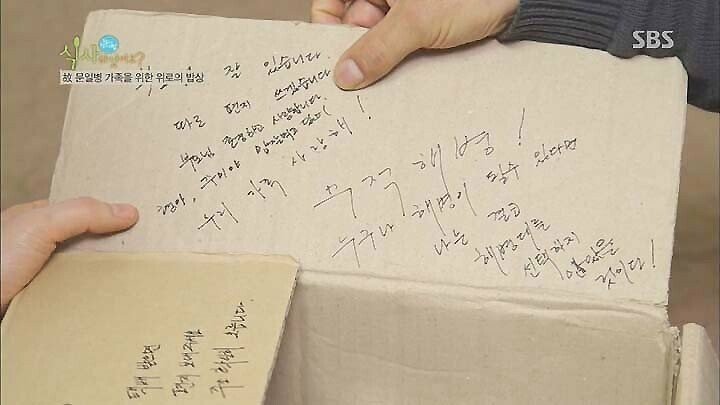 식사하셨어요?
SBS
故 문일병 가족을 위한 위로의 밥상
잘 있습니다.
따로 편지 쓰겠습니다.
부모님 존경하고 사랑합니다.
우리 가족 사랑해!
무적 해병!
누구나 해병이 될수 있다면
나는 결코
해병대를
선택하지
않았을
것이다!
택배 받으면
편지 보내주세요